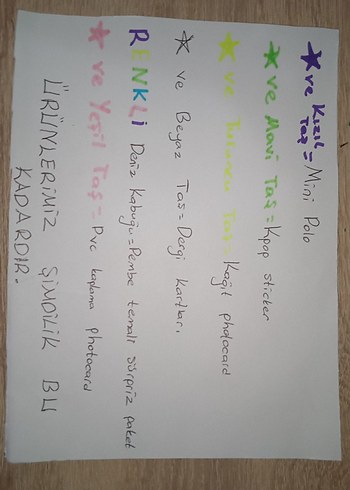 ★ ve Kızıl Taş = Mini Polo
★ ve Mavi Taş = Kpop sticker
★ ve Turuncu Taş = Kağıt photocard
★ ve Beyaz Tas = Dergi kartları
RENKLİ Deniz Kabuğu = Pembe temalı sürpriz paket
★ ve Yeşil Taş = Pvc kaplama photocard
ÜRÜNLERİMİZ ŞİMDİLİK BU
KADARDIR.